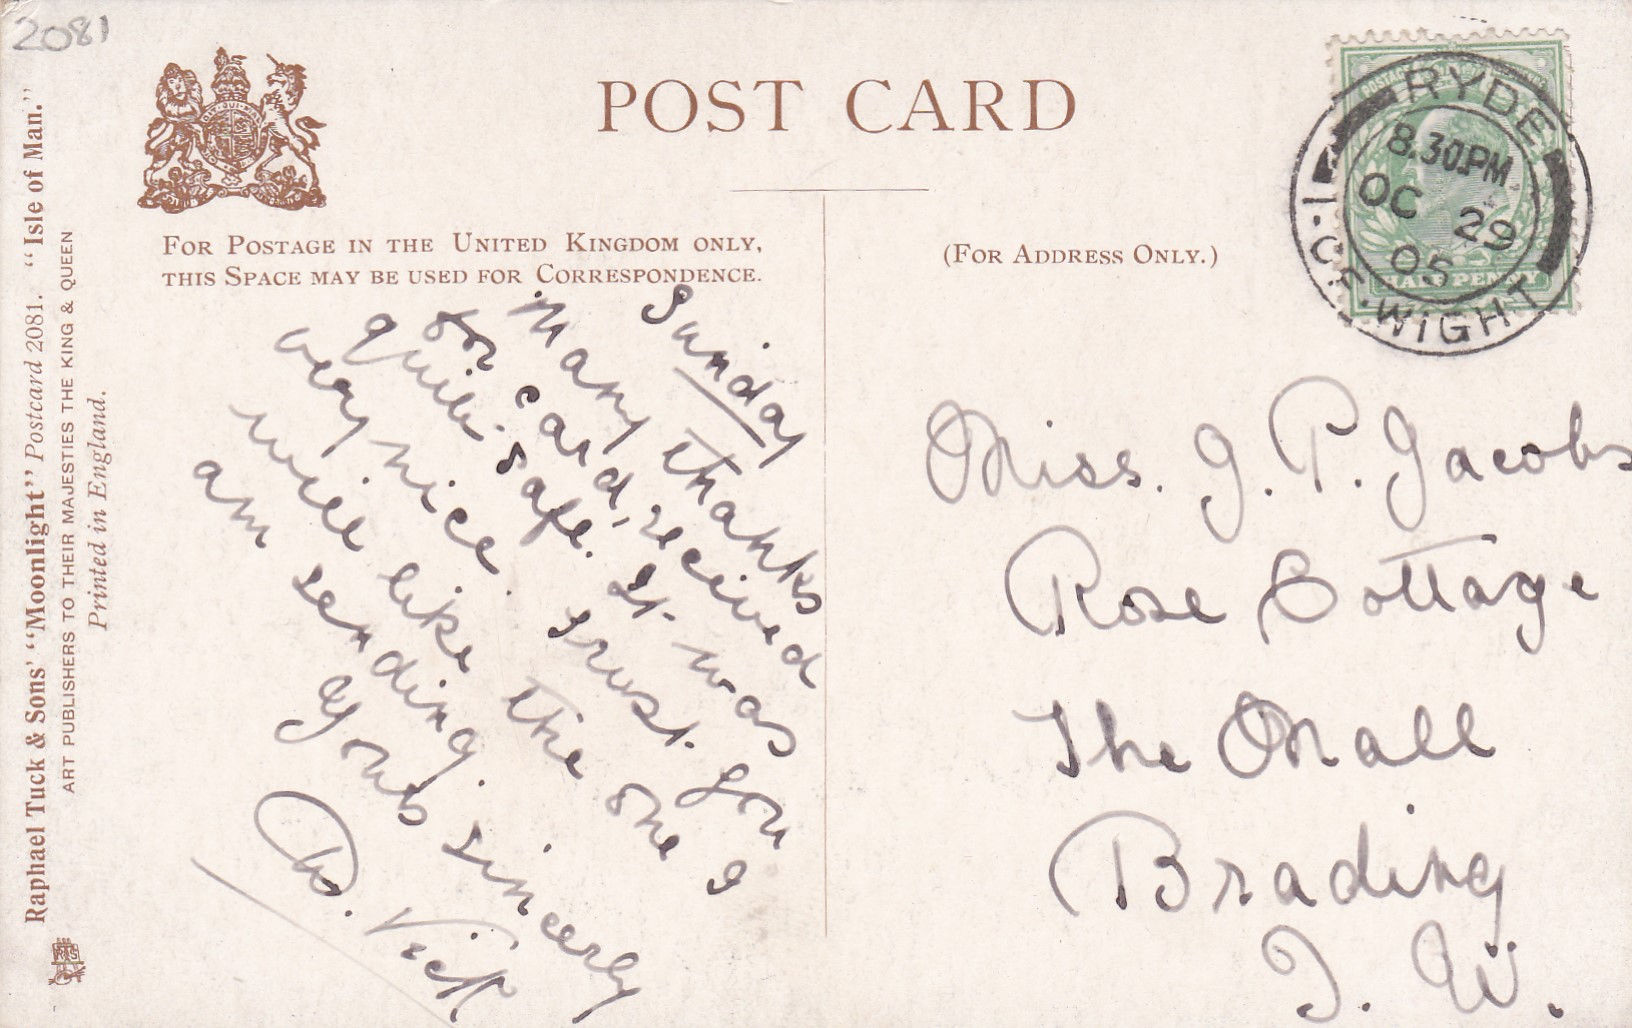 2081
POST CARD
FOR POSTAGE IN THE UNITED KINGDOM ONLY,
THIS SPACE MAY BE USED FOR CORRESPONDENCE.
(FOR ADDRESS ONLY.)
RYDE
8.30PM
OC 29
05
I. OF. WIGHT
HALFPENNY
Raphael Tuck & Sons' "Moonlight" Postcard 2081. "Isle of Man."
ART PUBLISHERS TO THEIR MAJESTIES THE KING & QUEEN
Printed in England.
Sunday
Many thanks
for card, received
quite safe. It was
very nice. I trust you
will like the one I
am sending.
Yours sincerly
Vick
Miss. J. P. Jacobs
Rose Cottage
The Mall
Brading
I. W.